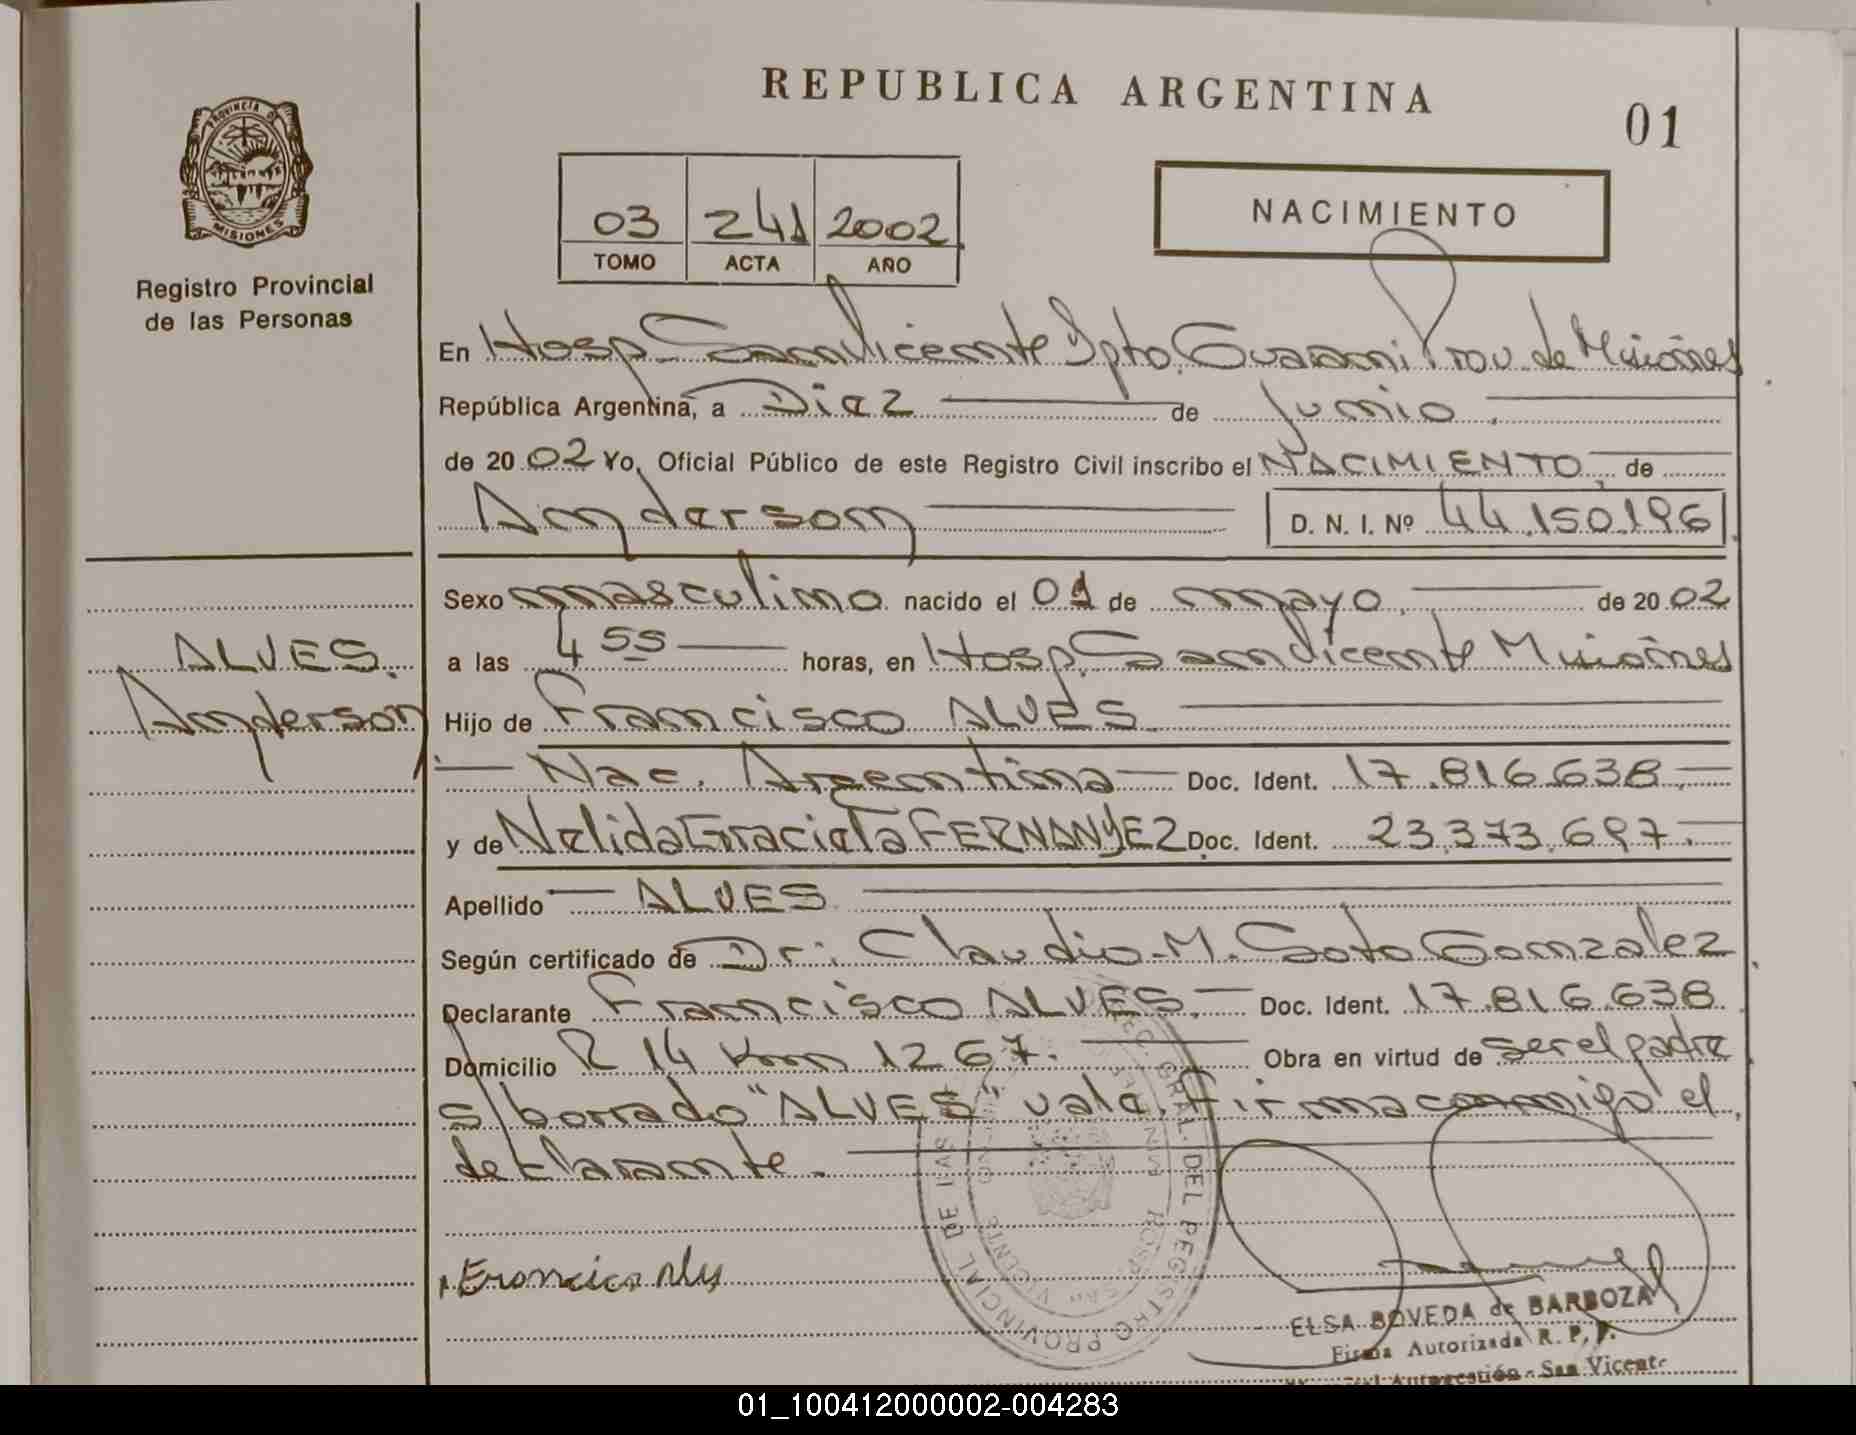 REPUBLICA ARGENTINA
01
PROVINCIA DE
MISIONES
Registro Provincial
de las Personas
03 241 2002
TOMO ACTA AÑO
NACIMIENTO
En Hosp. San Vicente Dpto. Guarani Prov. de Misiones
República Argentina, a Diez de Junio
de 2002 Yo, Oficial Público de este Registro Civil inscribo el NACIMIENTO de
Anderson D. N. I. Nº 44.150.196
Sexo masculino nacido el 01 de mayo de 2002
ALVES. a las 4 55 horas, en Hosp. San Vicente Misiones
Anderson Hijo de Francisco ALVES
Nac. Argentina Doc. Ident. 17.816.638
y de Nelida Graciela FERNANDEZ Doc. Ident. 23.373.697.
Apellido ALVES
Según certificado de Dr. Claudio M. Soto Gonzalez
Declarante Francisco ALVES. Doc. Ident. 17.816.638
Domicilio R 14 Km 1267. Obra en virtud de ser el padre
s/borrado "ALVES" vale. Firma conmigo el
declarante.
DEL REGISTRO PROVINCIAL DE LAS
Francisco Alves
ELSA BOVEDA de BARBOZA
Firma Autorizada R. P. P.
Autogestión - San Vicente
01_100412000002-004283